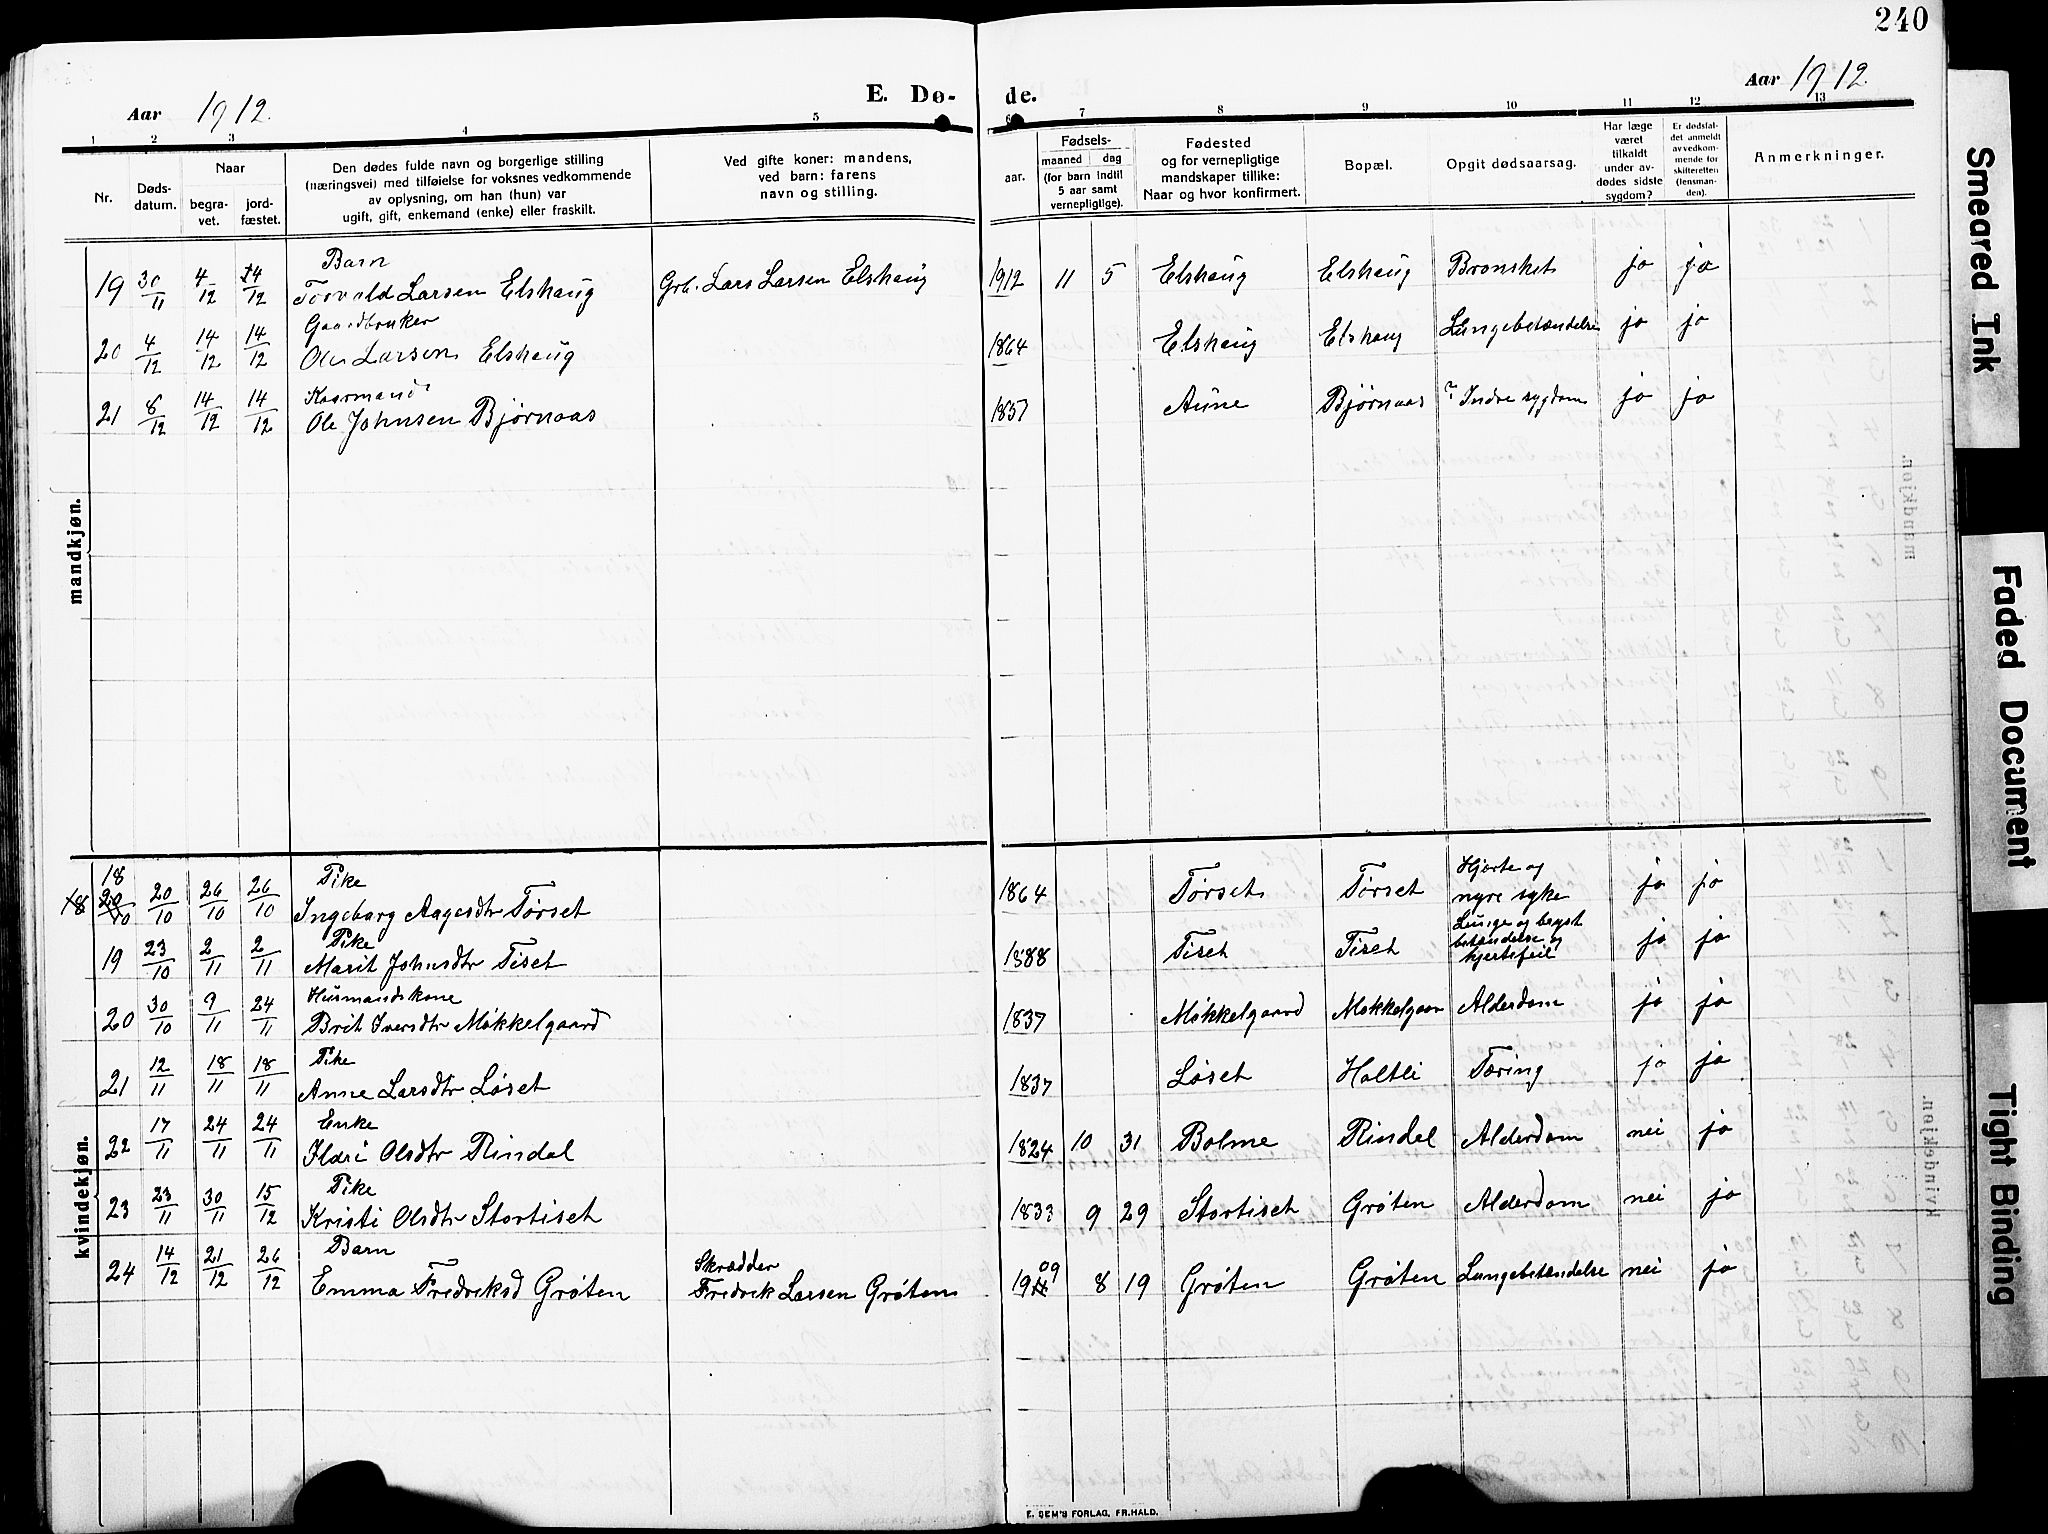 240
Aar 1912.
E. Dø-
de.
Aar 1912.
1 2 3 4 5
6 7 8 9 10 11 12 13
Nr.
Døds-
datum.
Naar
begra-
vet.
jord-
fæstet.
Den dødes fulde navn og borgerlige stilling
(næringsvei) med tilføielse for voksnes vedkommende
av oplysning, om han (hun) var
ugift, gift, enkemand (enke) eller fraskilt.
Ved gifte koner: mandens,
ved barn: farens
navn og stilling.
Fødsels-
aar.
maaned dag
(for barn indtil
5 aar samt
vernepligtige).
Fødested
og for vernepligtige
mandskaper tillike:
Naar og hvor konfirmert.
Bopæl.
Opgit dødsaarsag.
Har læge
været
tilkaldt
under av-
dødes sidste
sygdom?
Er dødsfal-
det anmeldt
av vedkom-
mende for
skifteretten
(lensman-
den).
Anmerkninger.
mandkjøn.
Barn
19 30/11 4/12 14/12 Torvald Larsen Elshaug Grb. Lars Larsen Elshaug 1912 11 5 Elshaug Elshaug Bronsket ja ja
Gaardbruker
20 4/12 14/12 14/12 Ole Larsen Elshaug 1864 Elshaug Elshaug Lungebetændelse ja ja
Kaarmand
21 8/12 14/12 14/12 Ole Johnsen Bjørnaas 1837 Aune Bjørnaas ? Indre sygdom ja ja
kvindekjøn.
18 Pike Hjerte og
18 20/10 20/10 26/10 26/10 Ingeborg Aagesdtr Tørset 1864 Tørset Tørset nyre syke ja ja
Pike Lunge og bryst
19 23/10 2/11 2/11 Marit Johnsdtr Tiset 1888 Tiset Tiset betændelse og ja ja
hjertefeil
Husmandskone
20 30/10 9/11 24/11 Brit Iversdtr Møkkelgaard 1837 Møkkelgaard Møkkelgaar Alderdom ja ja
Pike
21 12/11 18/11 18/11 Anne Larsdtr Løset 1837 Løset Holtli Tæring ja ja
Enke
22 17/11 24/11 24/11 Ildri Olsdtr Rindal 1824 10 31 Bolme Rindal Alderdom nei ja
Pike
23 23/11 30/11 15/12 Kristi Olsdtr Stortiset 1833 9 29 Stortiset Grøten Alderdom nei ja
Barn Skrædder
24 14/12 21/12 26/12 Emma Fredriksd Grøten Fredrik Larsen Grøten 1909 8 19 Grøten Grøten Lungebetændelse nei ja
E. SEM'S FORLAG, FR.HALD.
Smeared Ink
Faded Document
Tight Binding